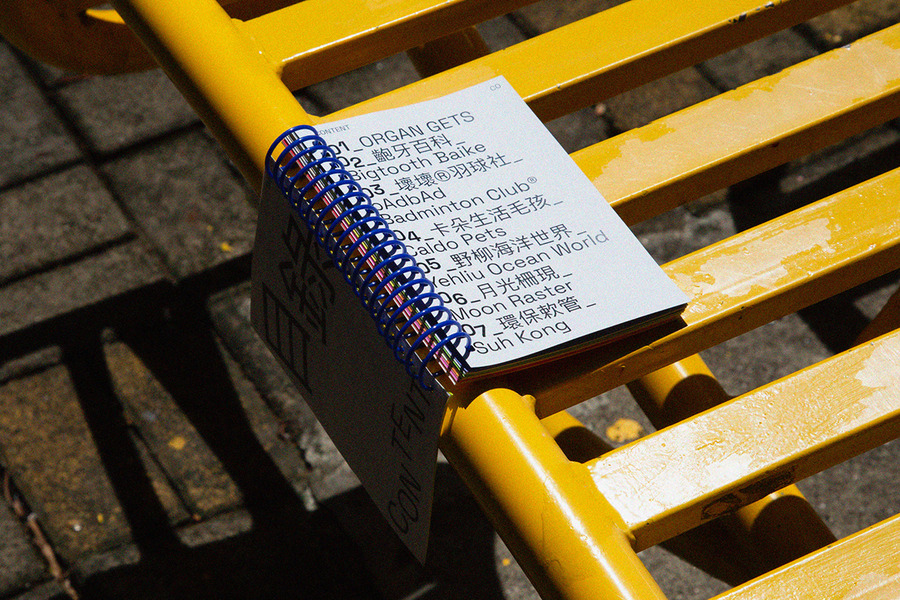 CONTENT
CO
01_ORGAN GETS
02_齙牙百科_
Bigtooth Baike
03_壞壞®羽球社_
BAdbAd
Badminton Club®
04_卡朵生活毛孩_
Caldo Pets
05_野柳海洋世界_
Yehliu Ocean World
06_月光柵現_
Moon Raster
07_環保軟管_
Suh Kong
目錄
CONTENT